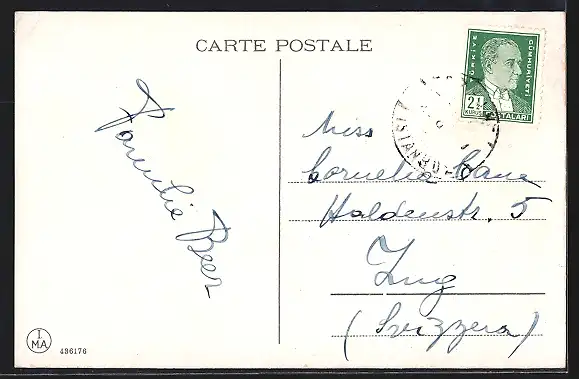 CARTE POSTALE
TÜRKİYE
CÜMHURİYETİ
2½
KURUŞ POSTALARI
İSTANBUL
Familie Beer
Miss
Cornelia Cane
Haldenstr. 5
Zug
(Svizzera)
I
MA
436176